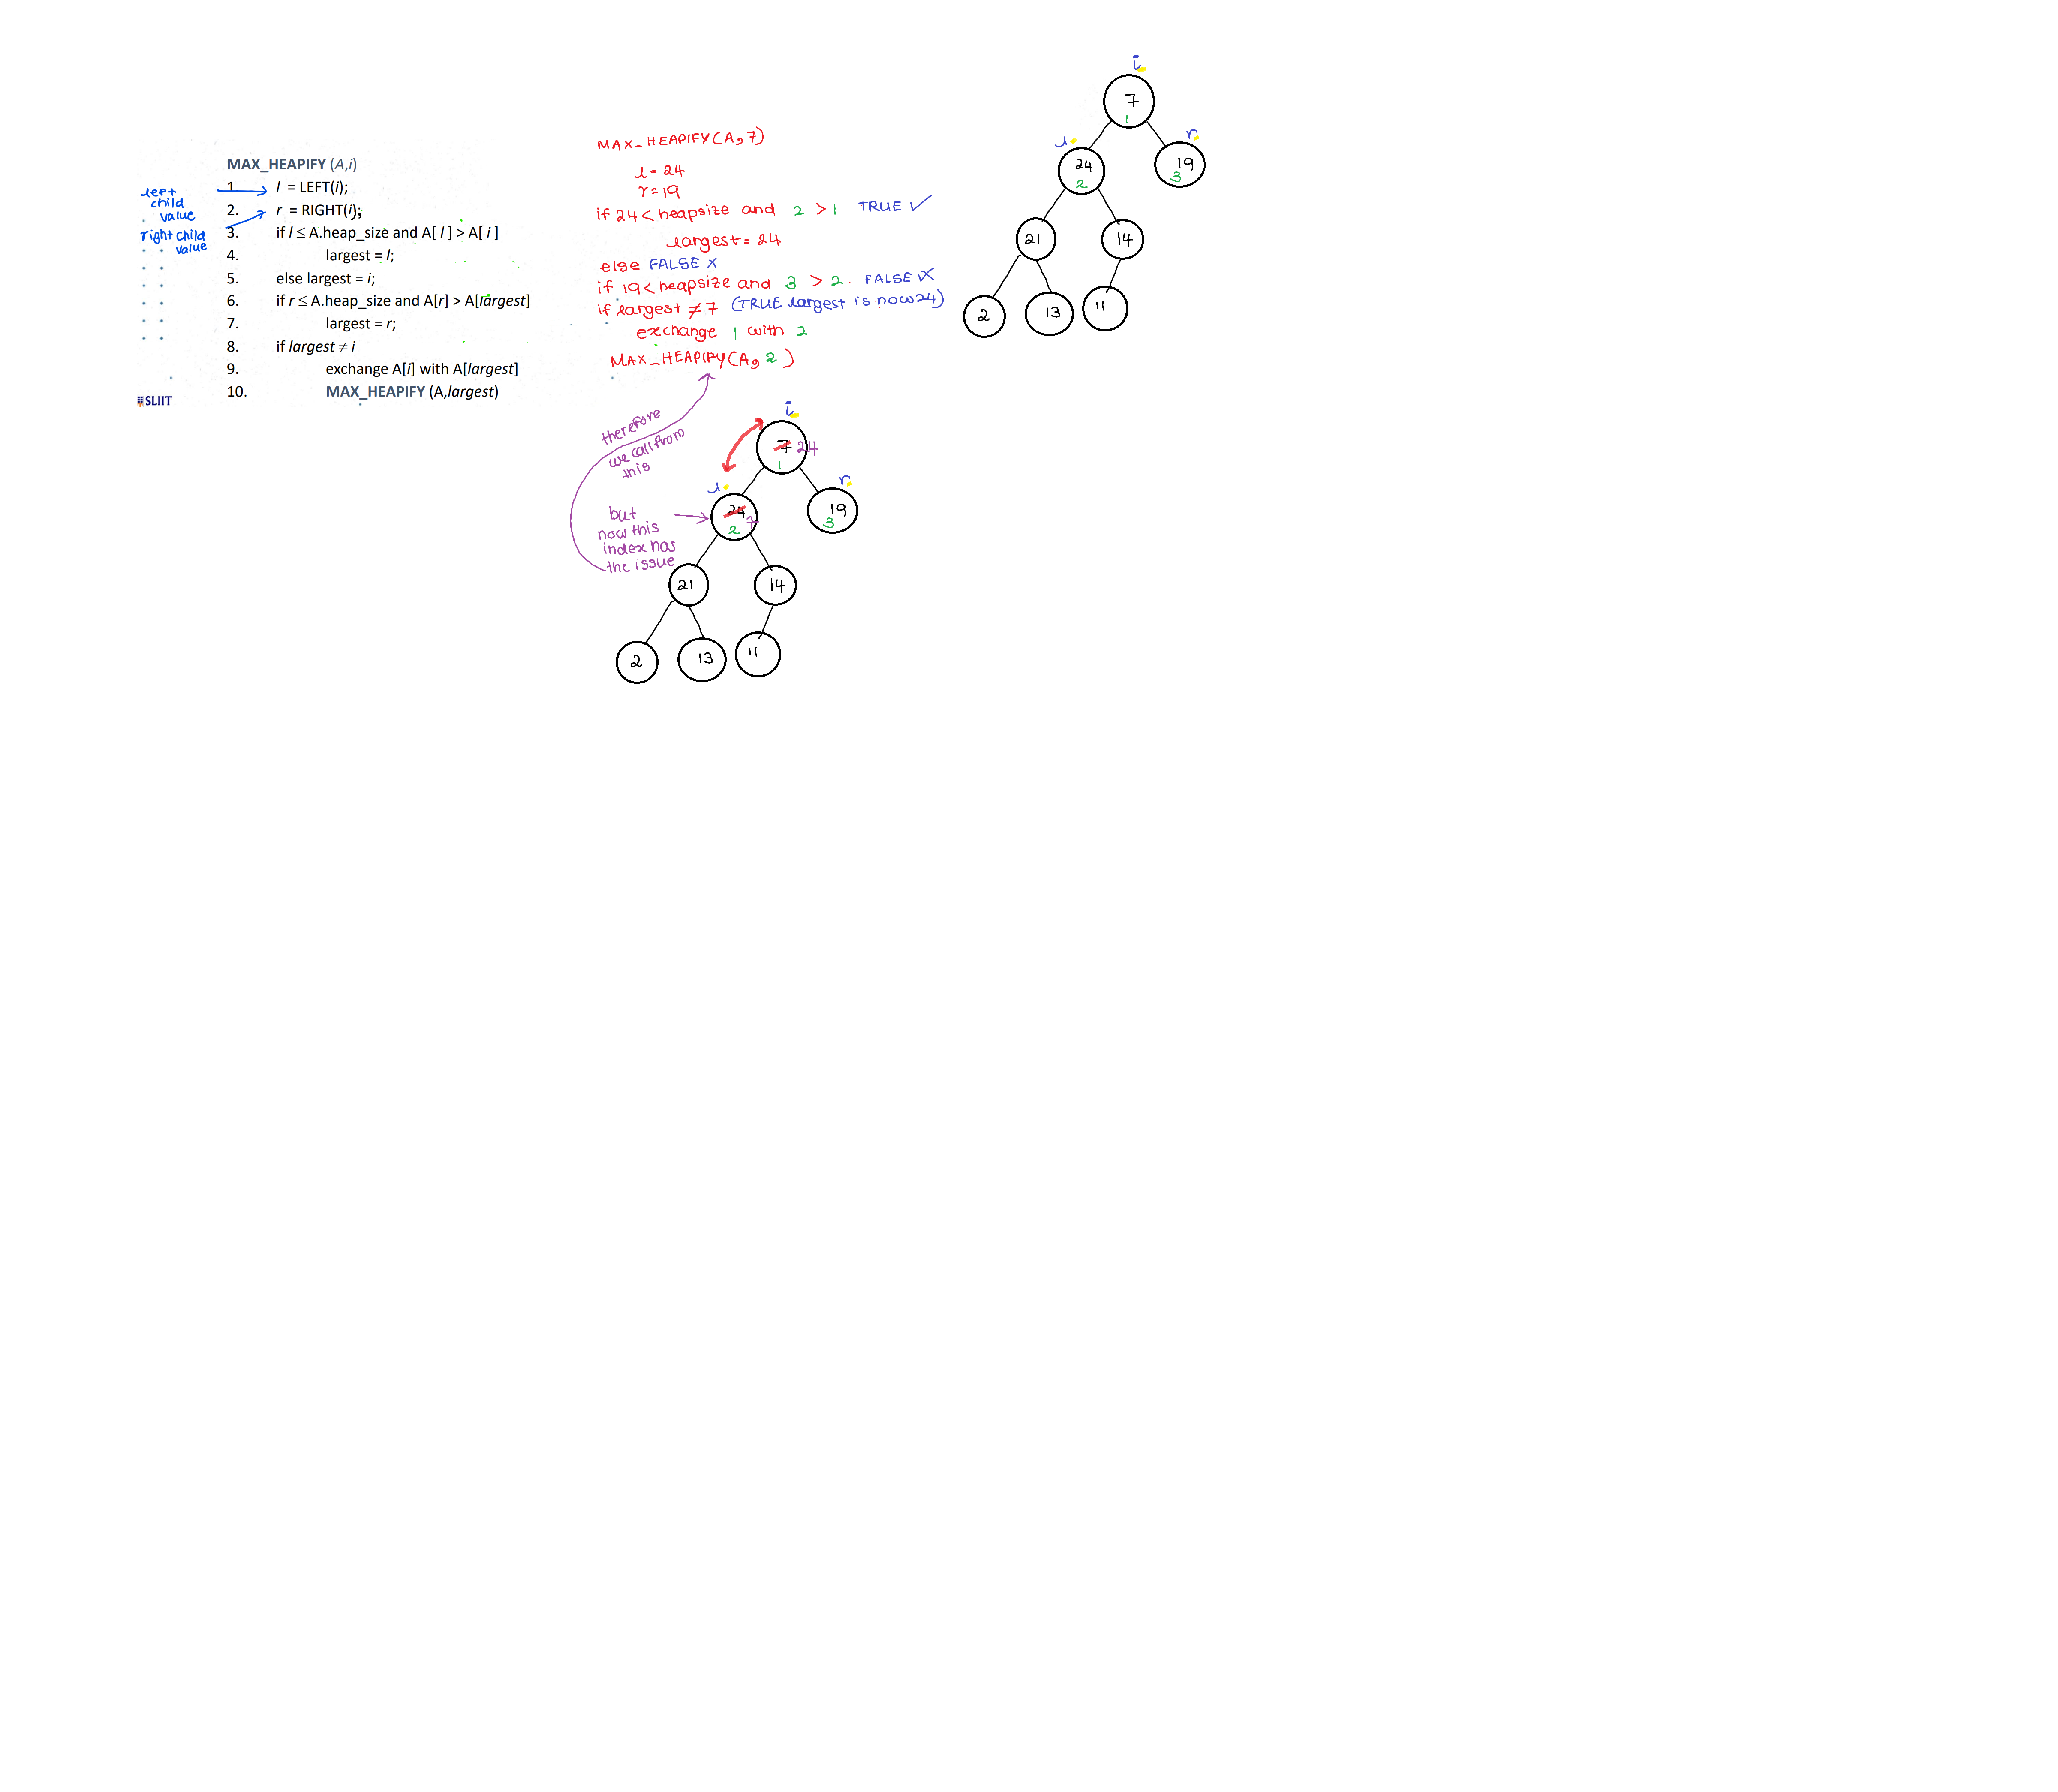 MAX_HEAPIFY (A,i)
1. l = LEFT(i);
2. r = RIGHT(i);
3. if l ≤ A.heap_size and A[ l ] > A[ i ]
4. largest = l;
5. else largest = i;
6. if r ≤ A.heap_size and A[r] > A[largest]
7. largest = r;
8. if largest ≠ i
9. exchange A[i] with A[largest]
10. MAX_HEAPIFY (A,largest)
SLIIT
left
child
value
right child
value
MAX_HEAPIFY(A,7)
l = 24
r = 19
if 24 < heapsize and 2 > 1 TRUE ✓
largest = 24
else FALSE x
if 19 < heapsize and 3 > 2. FALSE x
if largest ≠ 7 (TRUE largest is now 24)
exchange 1 with 2
MAX_HEAPIFY(A,2)
therefore
we call from
this
but
now this
index has
the issue
i
7
1
l
24
2
r
19
3
21
14
2
13
11
i
7 24
1
l
24 7
2
r
19
3
21
14
2
13
11